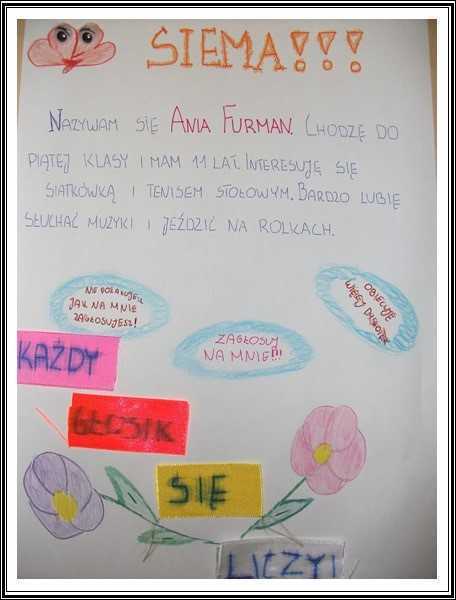 SIEMA!!!
NAZYWAM SIĘ ANIA FURMAN. CHODZĘ DO
PIĄTEJ KLASY I MAM 11 LAT. INTERESUJĘ SIĘ
SIATKÓWKĄ I TENISEM STOŁOWYM. BARDZO LUBIĘ
SŁUCHAĆ MUZYKI I JEŹDZIĆ NA ROLKACH.
NIE POŻAŁUJESZ
JAK NA MNIE
ZAGŁOSUJESZ!
ZAGŁOSUJ
NA MNIE!!!
OBIECUJĘ
WIĘCEJ DYSKOTEK
KAŻDY
GŁOSIK
SIĘ
LICZY!